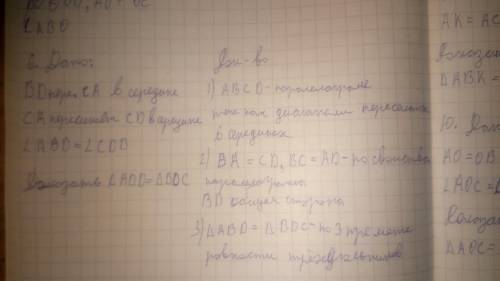 ∠ABD
6. Дано:
BD перес. CA в середине
CA пересекает CD в середине
∠ABD=∠CDD
Доказать
Док-во
1) ABCD-паралелограмм
так как диагонали пересекаются
в серединах
2) BA=CD, BC=AD- по свойству
паралелограмма
BD общая сторона
3) ΔABD=ΔBDC-по 3 признаку
равности треугольников
AK=AC
Доказать
ΔABK=
10. Дано
AO=OB
∠AOC=
Доказать
ΔAOC=